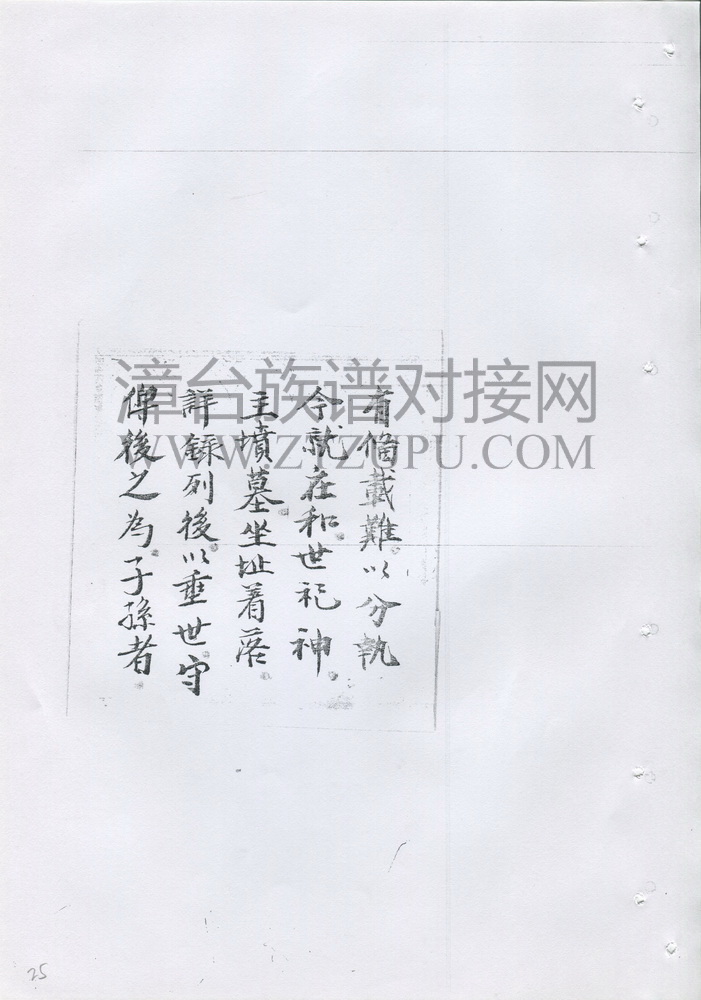 有偹載難以分執
今就在和世祀神
主墳墓坐址着落
詳錄列後以垂世守
俾後之為子孫者
漳台族谱对接网
WWW.ZTZUPU.COM
25